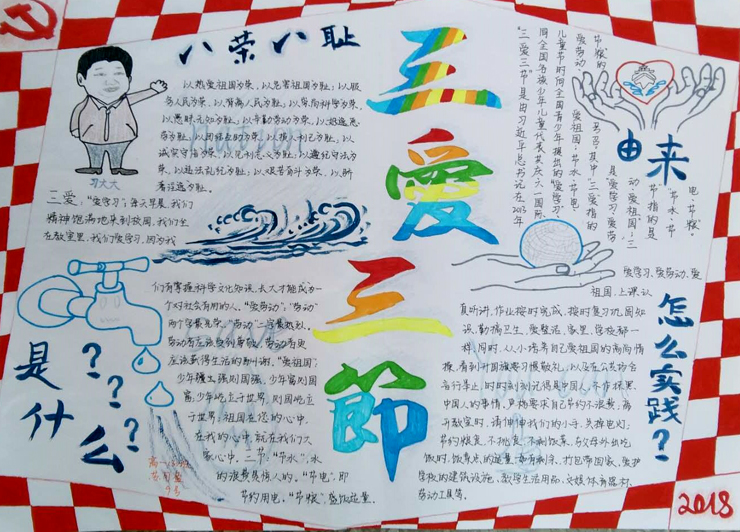 八荣八耻
以热爱祖国为荣,以危害祖国为耻,以服
务人民为荣,以背离人民为耻,以崇尚科学为荣,
以愚昧无知为耻,以辛勤劳动为荣,以好逸恶
劳为耻,以团结互助为荣,以损人利己为耻,以
诚实守信为荣,以见利忘义为耻,以遵纪守法为
荣,以违法乱纪为耻,以艰苦奋斗为荣,以骄
奢淫逸为耻。
习大大
三爱,“爱学习”;每天早晨,我们
精神饱满地来到校园,我们坐
在教室里,我们爱学习,因为我
们有掌握科学文化知识,长大才能成为一
个对社会有用的人。“爱劳动”,“劳动”
两个字最光荣,“劳动”二字最热烈,
劳动者应该受到尊敬,劳动者更
应该获得生活的酬谢。“爱祖国”;
少年强立则国强,少年富则国
富,少年屹立于世界,则国屹立
于世界,祖国在您的心中,
在我的心中,就在我们大
家心中。三节。“节水”,水
的浪费是惊人的。“节电”,即
节约用电。“节粮”,盛饭适量。
是什么???
三爱三節
由来
“三爱三节”是由习近平总书记在2013年
儿童节时向全国青少年提出的“爱学习”
爱劳动
爱祖国,节水,节电
节粮”的
号召,其中“三爱”指的
是“爱学习,爱劳
动,爱祖国”,三
节指的是
“节水,节
电,节粮”。
怎么实践?
爱学习、爱劳动、爱
祖国,上课认
真听讲,作业按时完成,按时复习巩固知
识,勤搞卫生,爱整洁,家里,学校都一
样,同时,从小培养自己爱祖国的高尚情
操,看到升国旗要习惯敬礼,以及在公共场合
言行举止,时时刻刻记得是中国人,不作抹黑
中国人的事情,严格要求自己节约不浪费,离
开教室时,请伸伸我们的小手,关掉电灯;
节约粮食,不挑食,不剩饭菜,与父母外出吃
饭时,饭菜点的适量,如有剩余,打包带回家,爱护
学校的建筑设施、教学生活用品、文娱体育器材、
劳动工具等。
2018